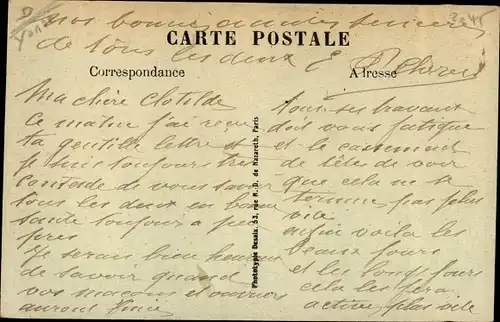 nos bonnes amitiés sincères
de tous les deux
CARTE POSTALE
Correspondance
Adresse
Ma chère Clotilde
ce matin j'ai reçu
ta gentille lettre et
je suis toujours très
contente de vous savoir
tous les deux en bonne
santé toujours à peu
près
Je serais bien heureuse
de savoir quand
vos maçons et ouvriers
auront fini
tous ses travaux
doit vous fatigué
et le cassement
de tête de voir
que cela ne se
termine pas plus
vite
enfin voilà les
beaux jours
et les longs jours
cela les fera
activer plus vite
Phototypie Desaix, 53, rue N.-D. de Nazareth, Paris